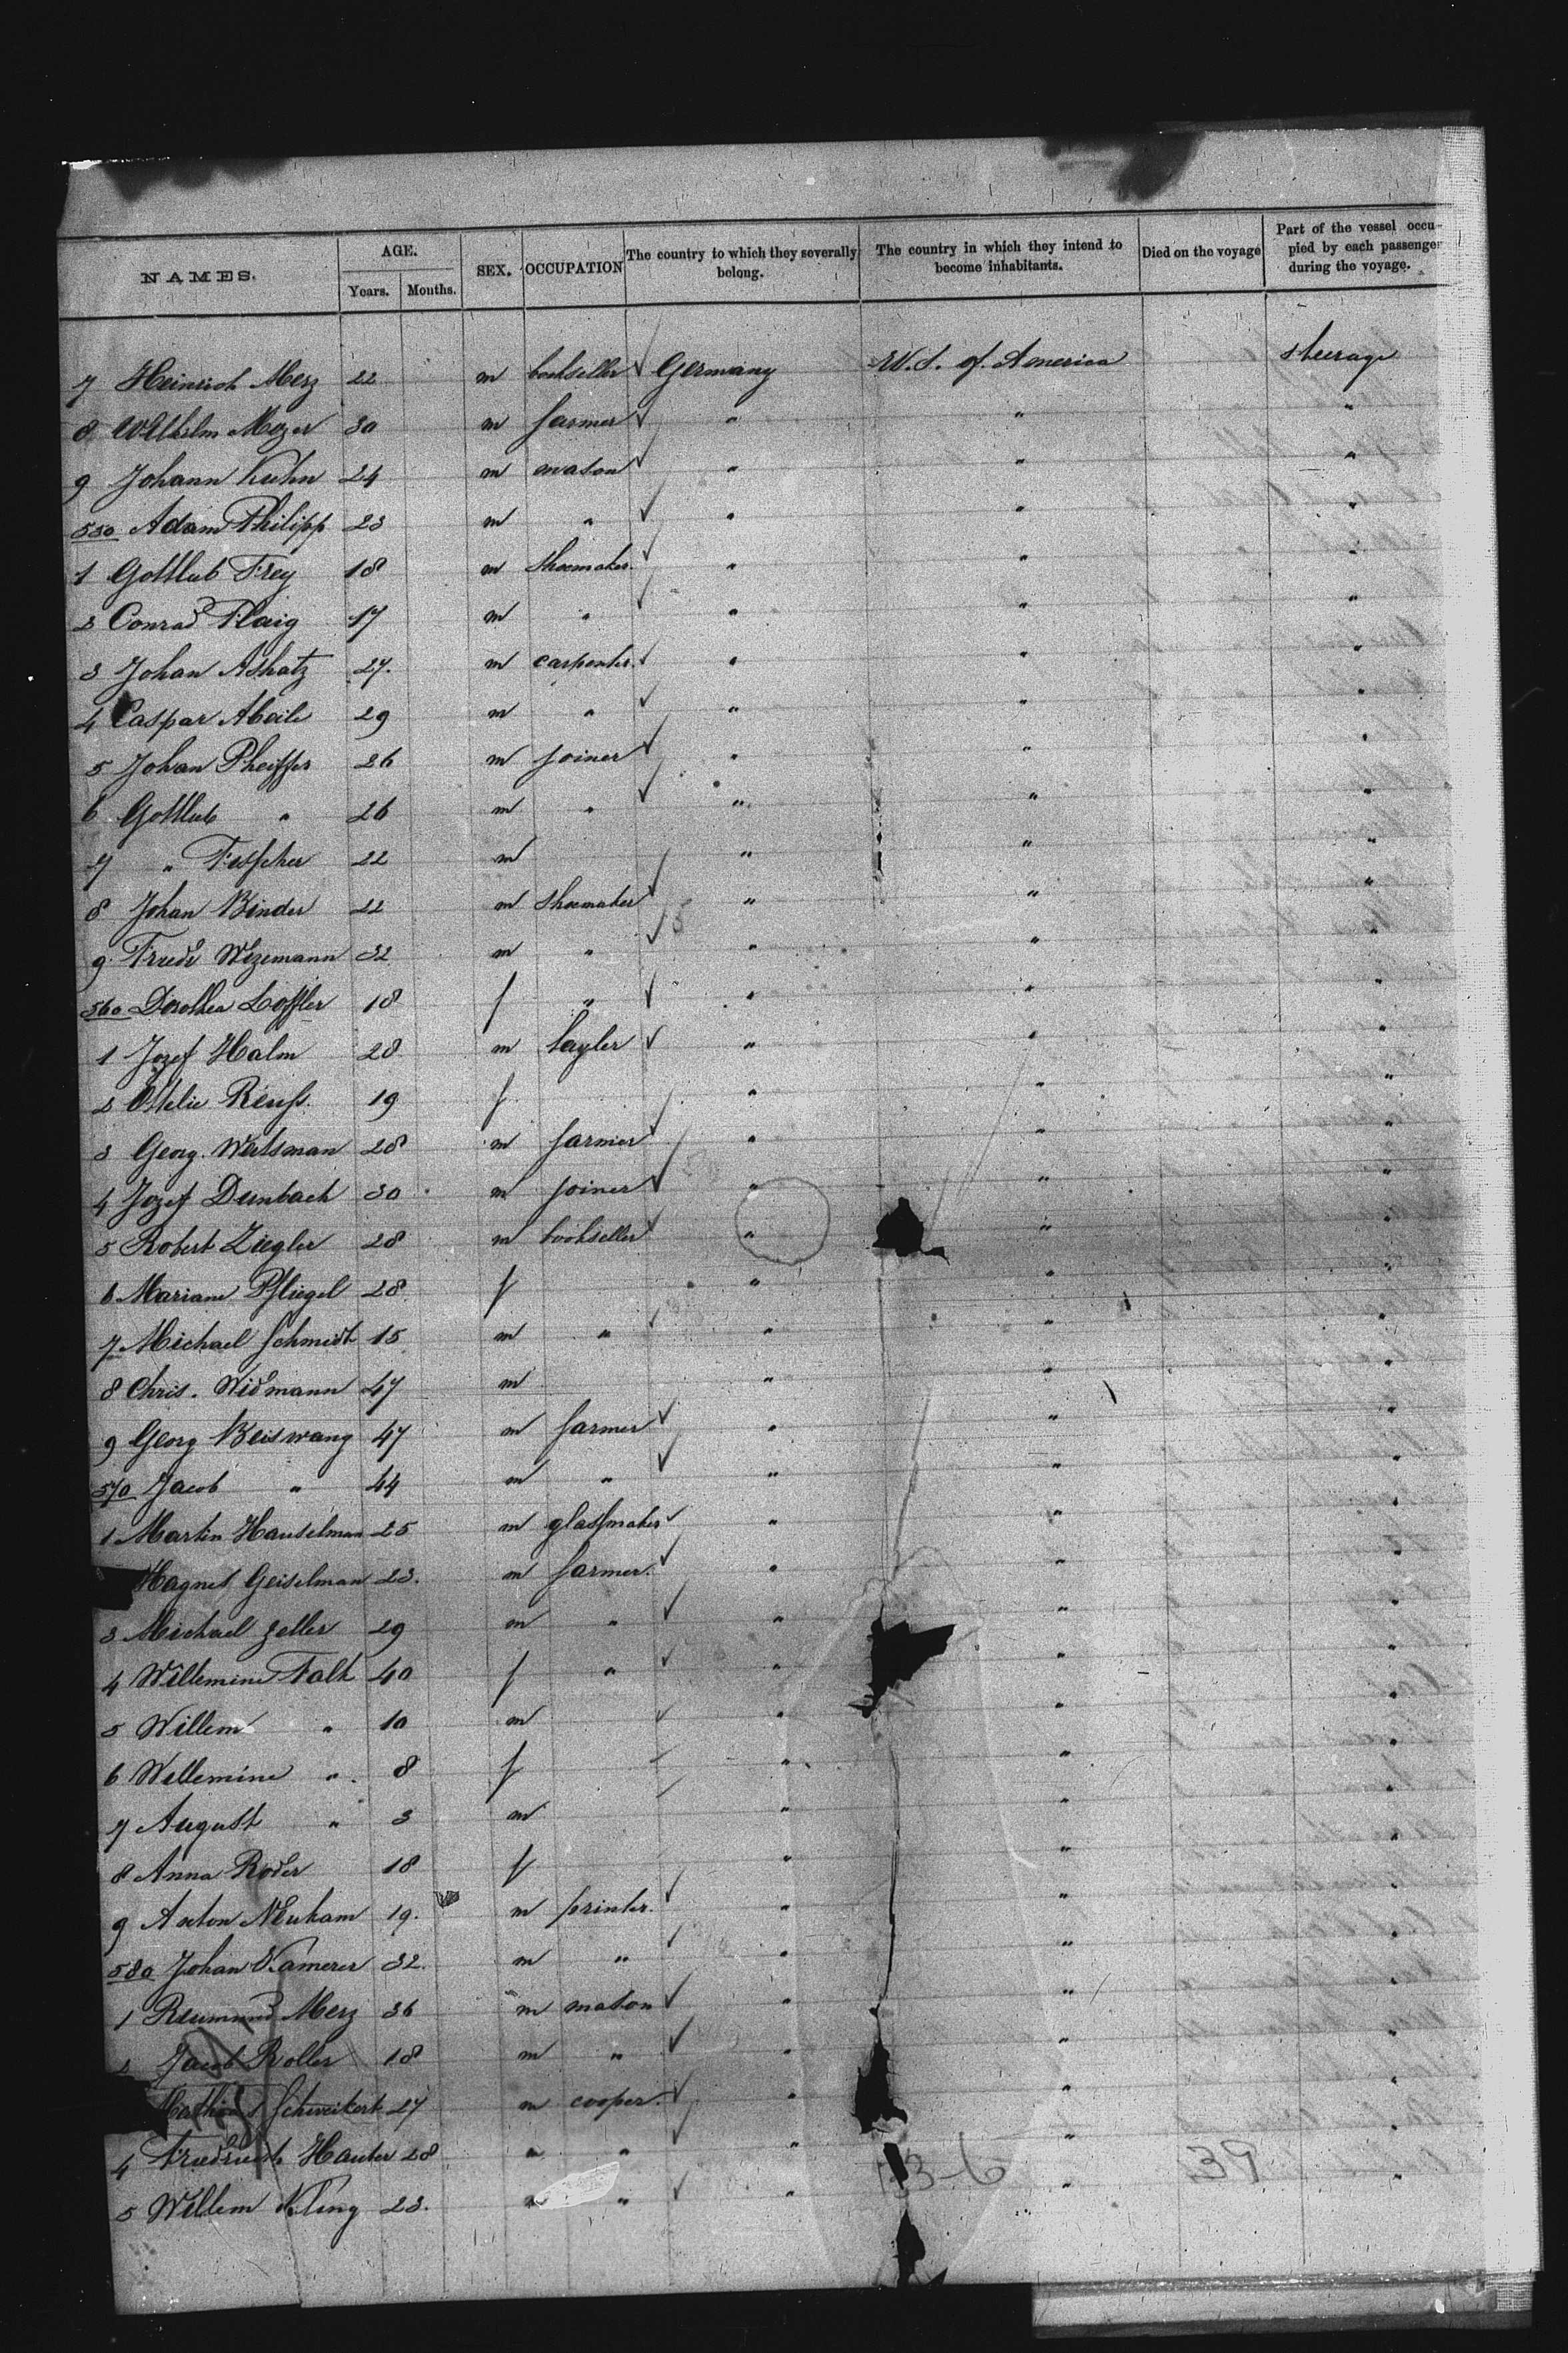 NAMES. AGE. SEX. OCCUPATION The country to which they severally belong. The country in which they intend to become inhabitants. Died on the voyage Part of the vessel occupied by each passenger during the voyage.
Years. Months.
7 Heinrich Merz 22 m bookseller Germany U.S. of America steerage
8 Wilhelm Mozer 30 m farmer " " "
9 Johann Kuhn 24 m mason " " "
550 Adam Philipp 23 m " " " "
1 Gottlieb Frey 18 m shoemaker " " "
2 Conrad Flaig 17 m " " " "
3 Johan Ashatz 27. m carpenter. " " "
4 Caspar Abeile 29 m " " " "
5 Johan Pheiffer 26 m joiner " " "
6 Gottlieb " 26 m " " " "
7 " 22 m " " "
8 Johan Binder 22 m shoemaker " " "
9 Friedr Wizemann 32 m " " " "
560 Dorothea Loffler 18 f " " " "
1 Jozef Halm 28 m tayler " " "
2 Ottelie Reuss. 19 f " " "
3 Georg. Weitsman 28 m farmer " " "
4 Jozef Dunbach 30 m joiner " " "
5 Robert Ziegler 28 m bookseller " " "
6 Mariane Pfliegel 28 f " " "
7 Michael Schmidt 15 m " " " "
8 Chris. Widmann 47 m " " "
9 Georg Beiswang 47 m farmer " " "
570 Jacob " 44 m " " " "
1 Martin Hauselman 25 m glassmaker " " "
Magnet Geiselman 23. m farmer. " " "
3 Michael Zeller 29 m " " " "
4 Willemine Falk 40 f " " " "
5 Willem " 10 m " " "
6 Willemine " 8 f " " "
7 August " 3 m " " "
8 Anna Roder 18 f " " "
9 Anton Neuham 19. m printer. " " "
580 Johan Kamerer 32. m " " " "
1 Reumund Merz 36 m mason " " "
2 Jacob Roller 18 m " " " "
Mathias Schweikert 27 m cooper. " " "
4 Friedrich Hauter 28 " " " "
33-6 39
5 Willem Kling 23. " " " "